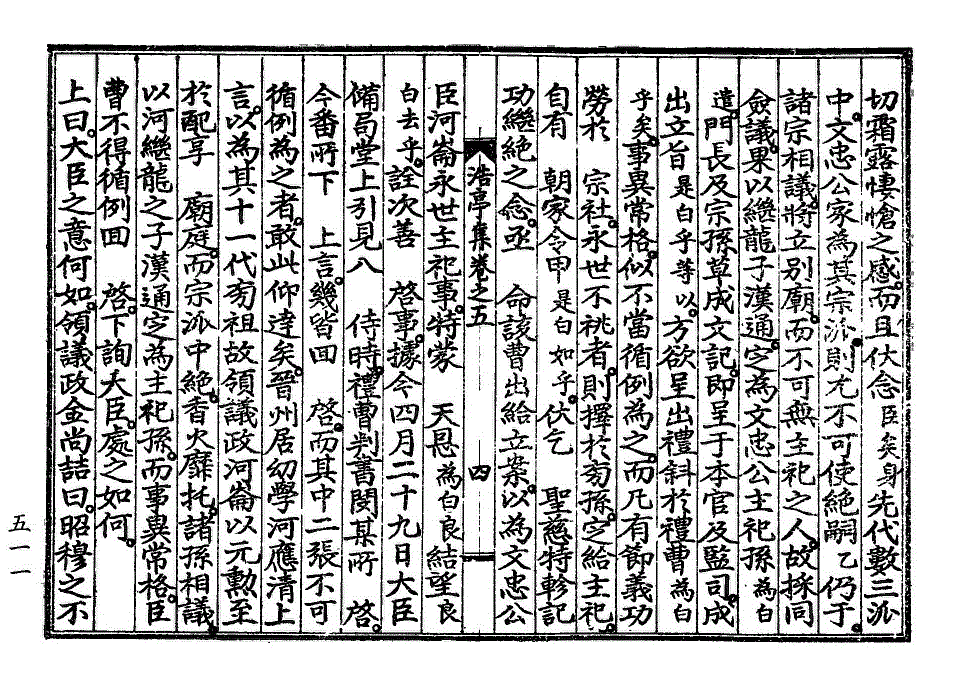 切霜露悽愴之感。而且伏念臣矣身先代數三派
中。文忠公家爲其宗派。則尤不可使絕嗣乙仍于。
諸宗相議。將立別廟。而不可無主祀之人。故採同
僉議。果以繼龍子漢通。定爲文忠公主祀孫爲白
遣。門長及宗孫草成文記。卽呈于本官及監司。成
出立旨是白乎等以。方欲呈出禮斜於禮曹爲白
乎矣。事異常格。似不當循例爲之。而凡有節義功
勞於 宗社。永世不祧者。則擇於旁孫。定給主祀。
自有 朝家令甲是白如乎。伏乞 聖慈特軫記
功繼絕之念。亟 命該曹出給立案。以爲文忠公
浩亭集卷之五 四
臣河崙永世主祀事。特蒙 天恩爲白良結望良
白去乎。詮次善 啓事。據今四月二十九日大臣
備局堂上引見入 侍時。禮曹判書閔某所 啓
今番所下 上言。幾皆回 啓。而其中二張不可
循例爲之者。敢此仰達矣。晉州居幼學河應淸上
言。以爲其十一代旁祖故領議政河崙以元勳至
於配享 廟庭。而宗派中絕。香火靡托。諸孫相議。
以河繼龍之子漢通定爲主祀孫。而事異常格。臣
曹不得循例回 啓。下詢大臣。處之如何。
上曰。大臣之意何如。領議政金尙喆曰。昭穆之不
五一一